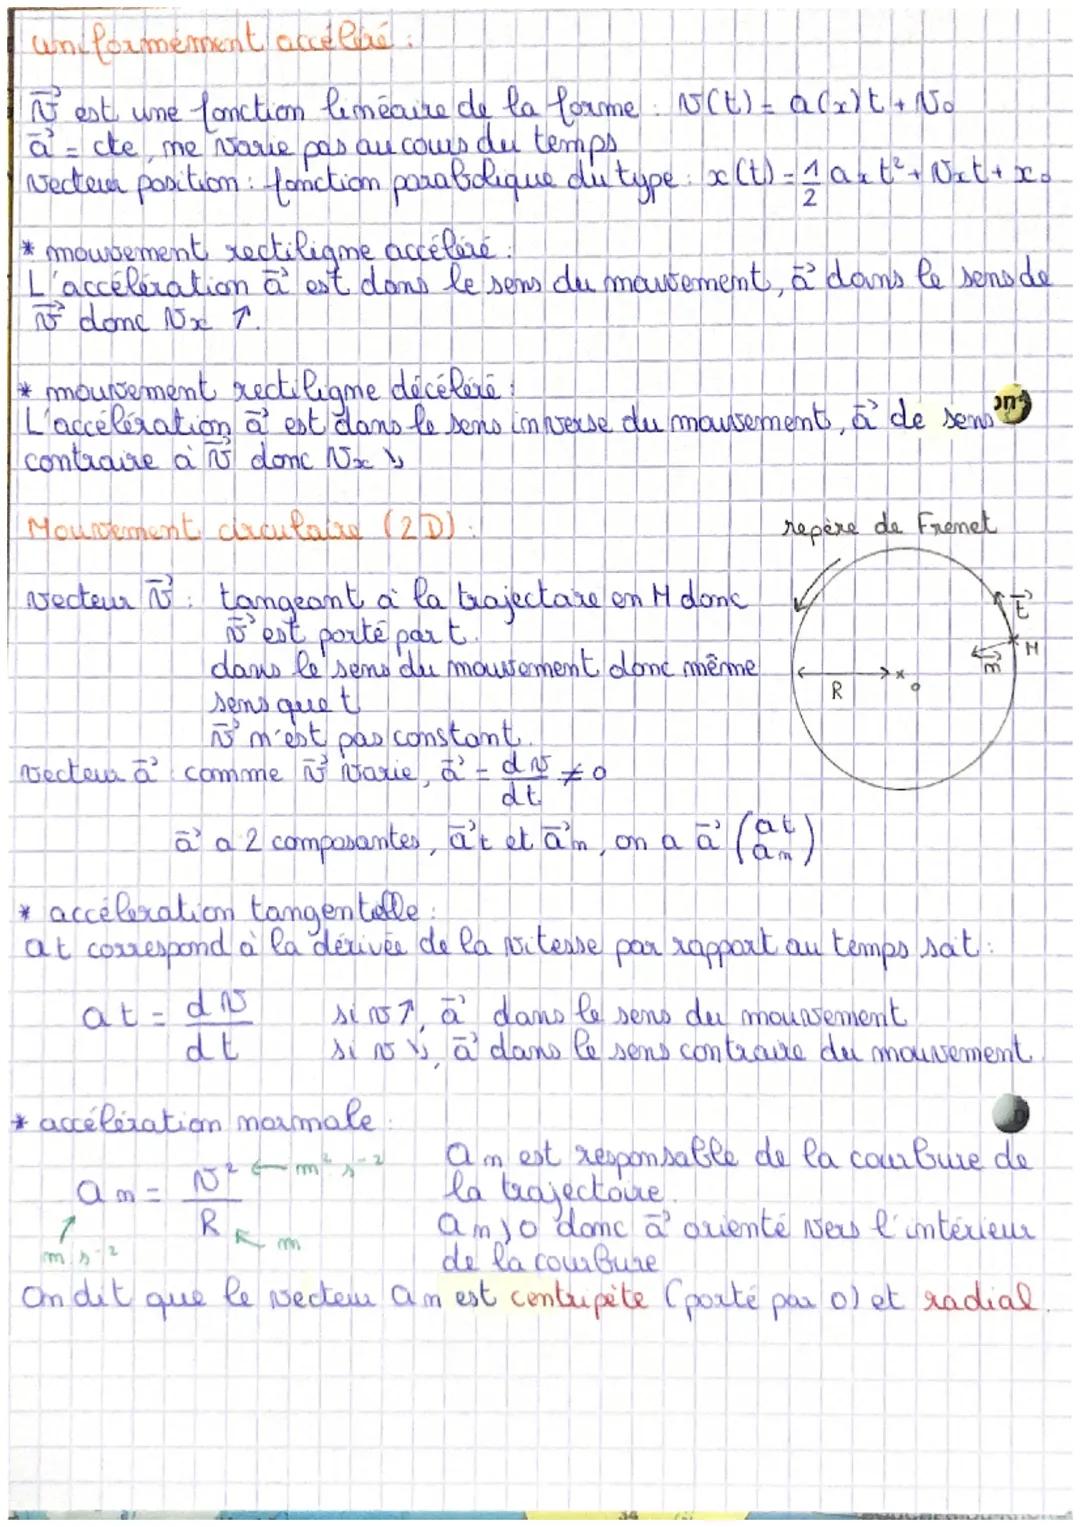 uniformément accéléré :
v⃗ est une fonction linéaire de la forme : v(t) = a(x)t + v₀
a⃗ = cte, ne varie pas au cours du temps
vecteur position : fonction parabolique du type : x(t) = 1/2 aₓt² + vₓt + x₀
* mouvement rectiligne accéléré :
L'accélération a⃗ est dans le sens du mouvement, a⃗ dans le sens de
v⃗ donc vₓ ↗.
* mouvement rectiligne décéléré :
L'accélération a⃗ est dans le sens inverse du mouvement, a⃗ de sens
contraire à v⃗ donc vₓ ↘
Mouvement circulaire (2D) :
repère de Frenet
t⃗
M
n⃗
R
o
vecteur v⃗ : tangeant à la trajectoire en M donc
v⃗ est porté par t.
dans le sens du mouvement donc même
sens que t
v⃗ n'est pas constant.
vecteur a⃗ : comme v⃗ varie, a⃗ = dv/dt ≠ 0
a⃗ a 2 composantes, a⃗t et a⃗n, on a a⃗ (at an)
* accéleration tangentelle :
at correspond à la dérivée de la vitesse par rapport au temps soit :
at = dv/dt
si v ↗, a⃗ dans le sens du mouvement
si v ↘, a⃗ dans le sens contraire du mouvement.
* accélération normale :
an = v²/R
← m² s⁻²
m
m.s⁻²
an est responsable de la courbure de
la trajectoire.
an > 0 donc a⃗ orienté vers l'intérieur
de la courbure
On dit que le vecteur an est centripète (porté par o) et radial.